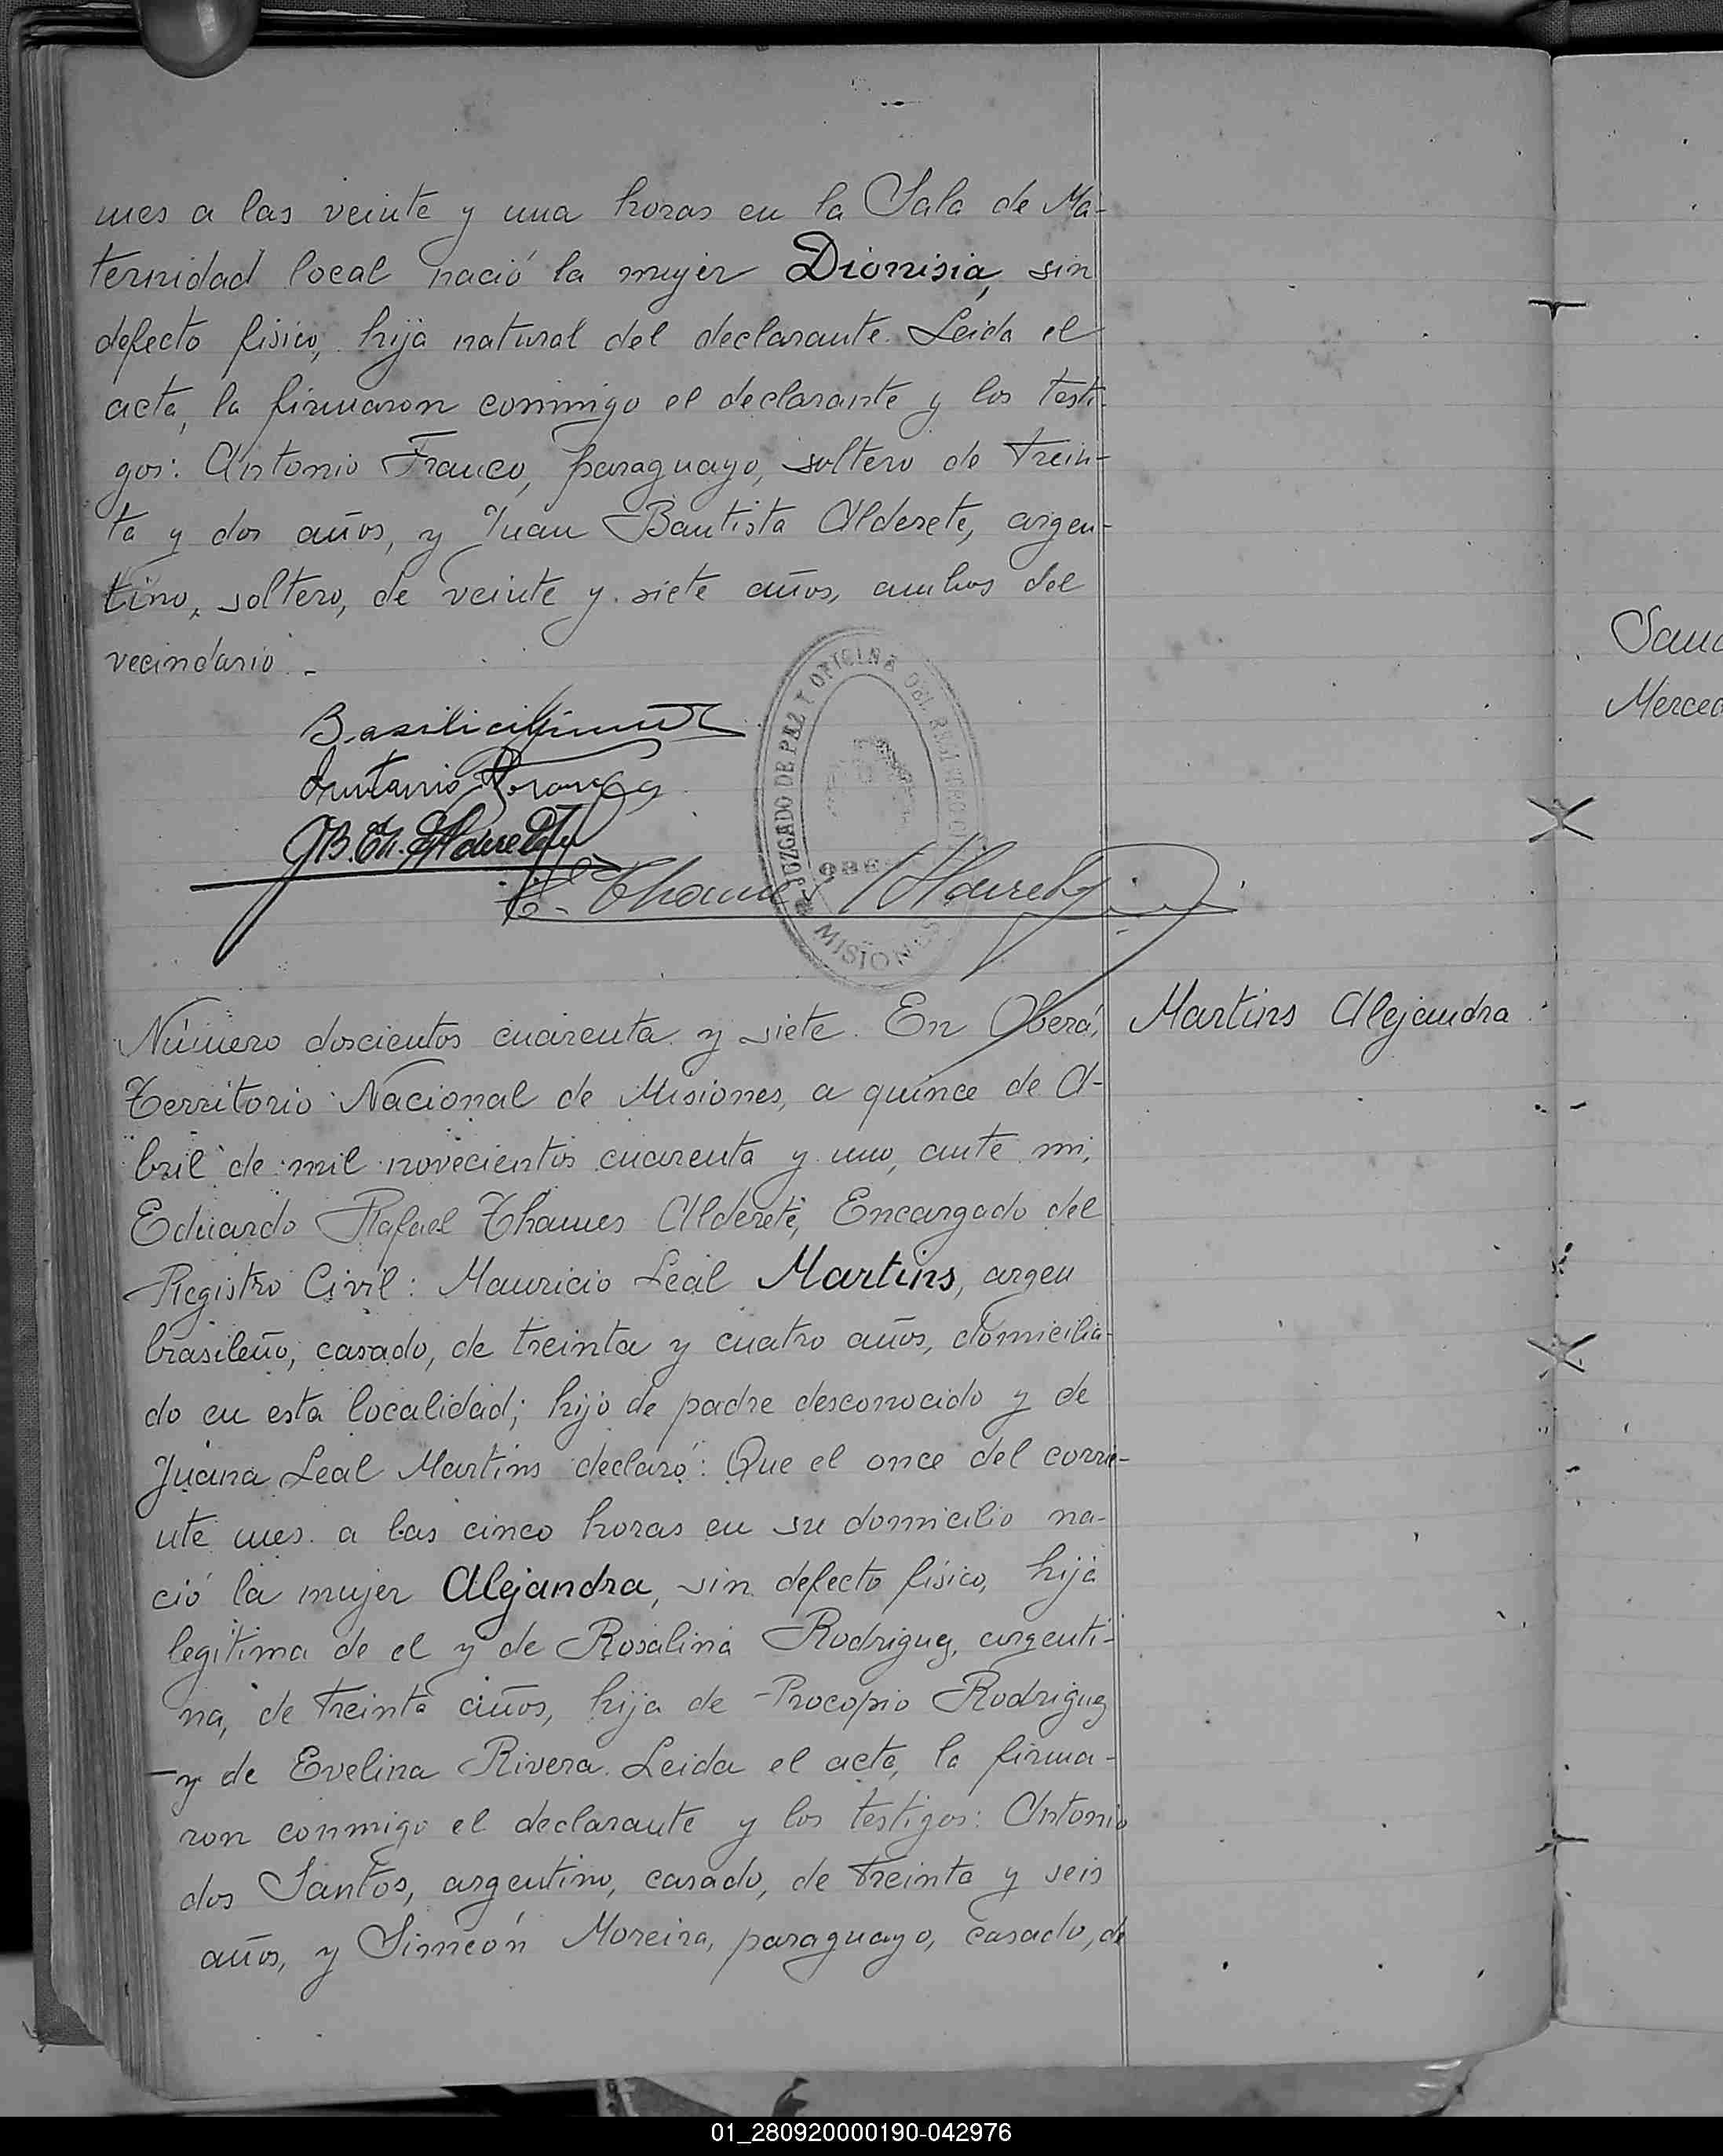 mes a las veinte y una horas en la Sala de Ma-
ternidad local nació la mujer Dionisia, sin
defecto físico, hija natural del declarante. Leida el
acta, la firmaron conmigo el declarante y los testi-
gos: Antonio Franco, paraguayo, soltero de trein-
ta y dos años, y Juan Bautista Alderete, argen-
tino, soltero, de veinte y siete años, ambos del
vecindario.-
Antonio Franco
JUZGADO DE PAZ Y OFICINA DEL REGISTRO
OBE
MISIONES
E. Thames Alderete
Sanc
Merced
Número doscientos cuarenta y siete. En Oberá,
Martins Alejandra
Territorio Nacional de Misiones, a quince de A-
bril de mil novecientos cuarenta y uno, ante mi,
Eduardo Rafael Thames Alderete, Encargado del
Registro Civil: Mauricio Leal Martins, argen
brasileño, casado, de treinta y cuatro años, domicilia-
do en esta localidad; hijo de padre desconocido y de
Juana Leal Martins declaró: Que el once del corrie-
nte mes a las cinco horas en su domicilio na-
ció la mujer Alejandra, sin defecto físico, hija
legítima de el y de Rosalina Rodriguez, argenti-
na, de treinta años, hija de Procopio Rodriguez
y de Evelina Rivera. Leida el acta, la firma-
ron conmigo el declarante y los testigos: Antonio
dos Santos, argentino, casado, de treinta y seis
años, y Simeón Moreira, paraguayo, casado, de
01_280920000190-042976